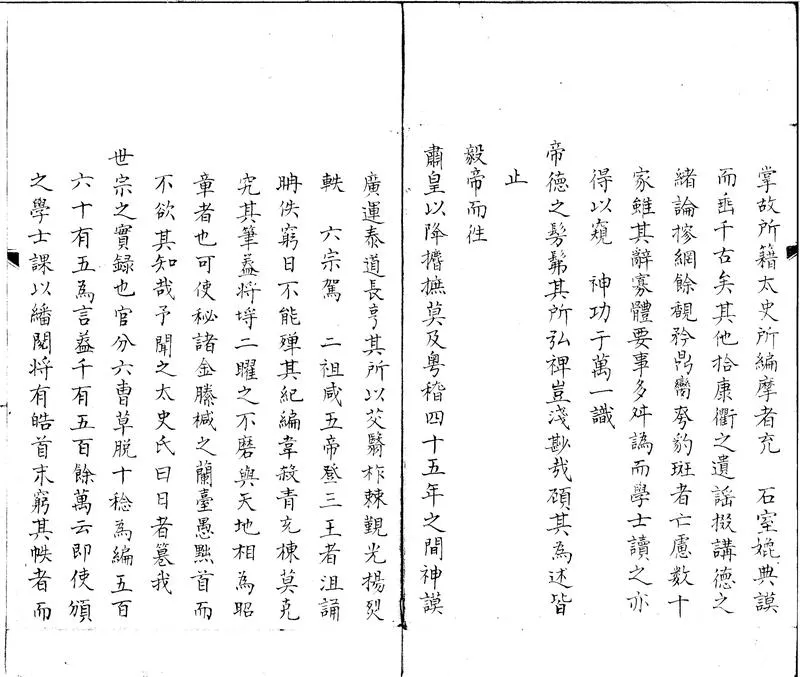 掌故所籍太史所編摩者充　石室媲典謨
而垂千古矣其他拾康衢之遺謠掇講德之
緒論摉網餘覩矜鼎臠夸豹斑者亡慮數十
家雖其辭寡體要事多舛譌而學士讀之亦
得以窺　神功于萬一識
帝德之髣髴其所弘裨豈淺尠哉碩其為述皆
止
毅帝而徃
肅皇以降擩摭莫及粵稽四十五年之間神謨
廣運泰道長亨其所以芟翳柞棘覲光揚烈
軼　六宗駕　二祖咸五帝登三王者沮誦
㫋佚窮日不能殫其紀編韋殺青充棟莫克
究其筆葢將埒二曜之不磨與天地相為昭
章者也可使秘諸金縢椷之蘭臺愚黔首而
不欲其知哉予聞之太史氏曰日者篹我
世宗之實録也官分六曹草脫十稔為編五百
六十有五為言葢千有五百餘萬云即使頒
之學士課以繙閱將有皓首末窮其帙者而